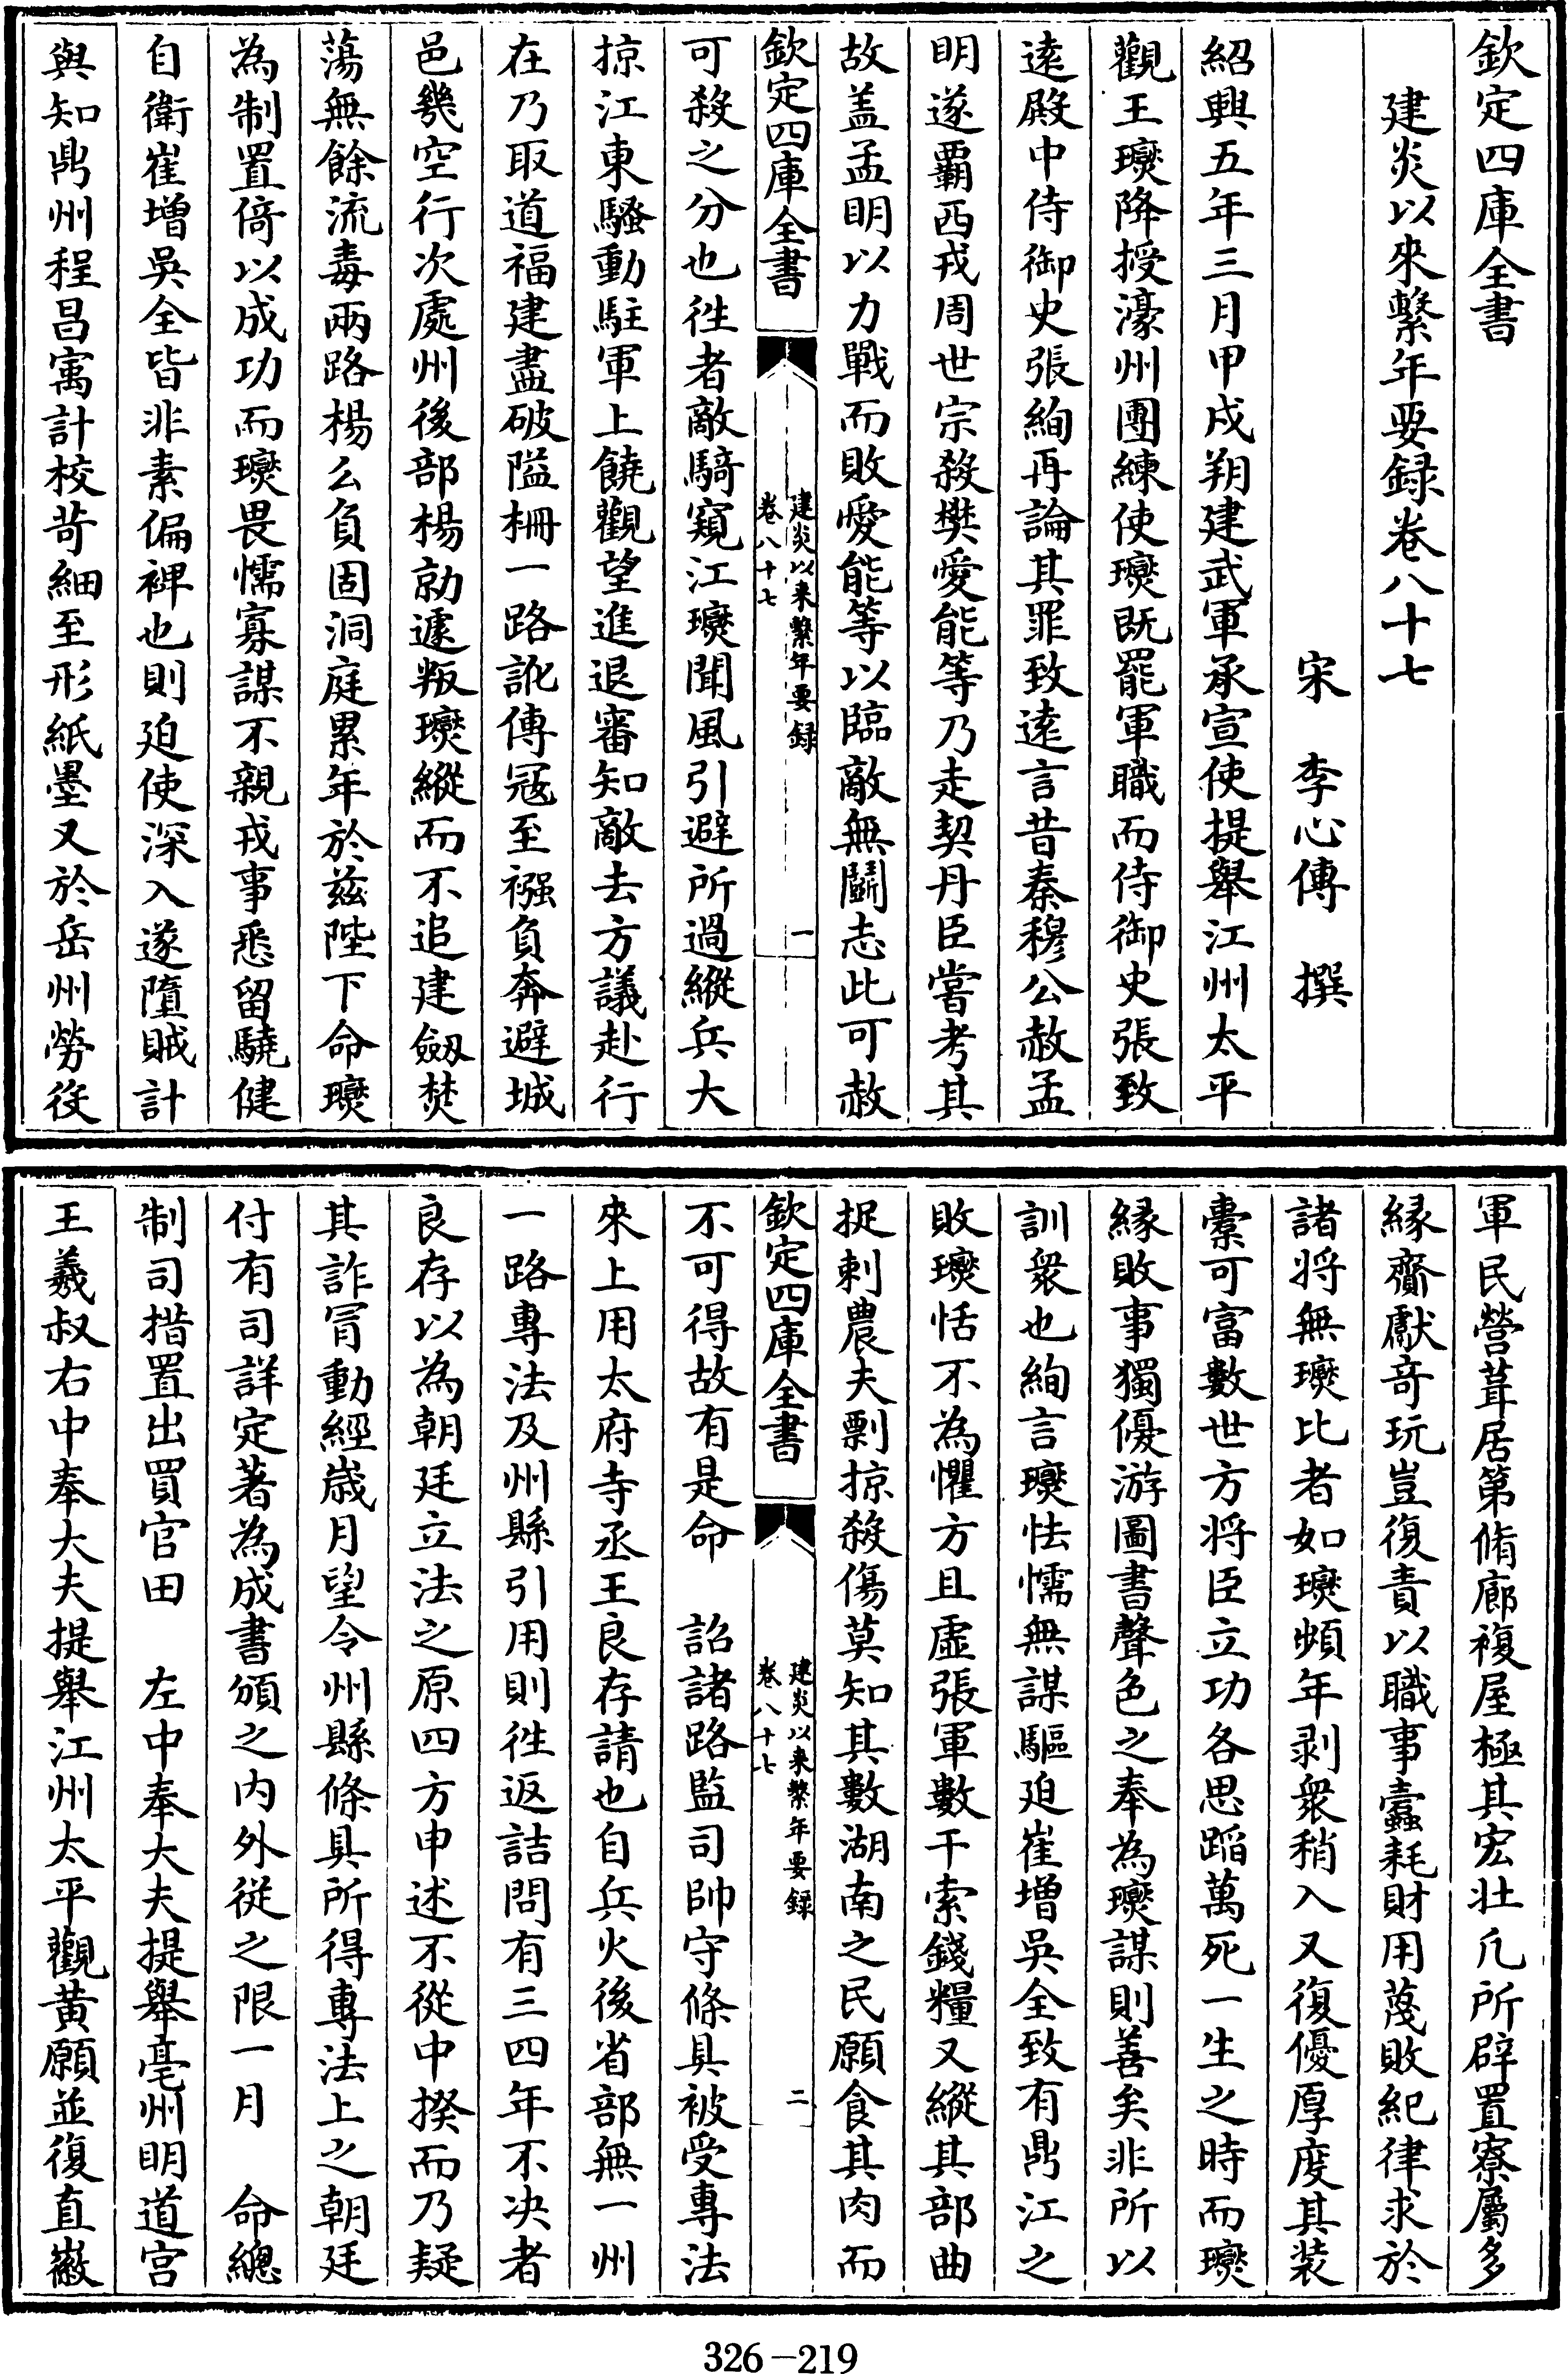 欽定四庫全書
建炎以來繫年要録卷八十七
宋　李心傳　撰
紹興五年三月甲戌朔建武軍承宣使提舉江州太平
觀王𤫉降授濠州團練使𤫉既罷軍職而侍御史張致
逺殿中侍御史張絢再論其罪致逺言昔秦穆公赦孟
明遂覇西戎周世宗殺樊愛能等乃走契丹臣嘗考其
故盖孟明以力戰而敗愛能等以臨敵無鬭志此可赦
欽定四庫全書
建炎以來繫年要録
卷八十七
一
可殺之分也徃者敵騎窺江𤫉聞風引避所過縱兵大
掠江東騷動駐軍上饒觀望進退審知敵去方議赴行
在乃取道福建盡破隘柵一路訛傳冦至襁負奔避城
邑幾空行次處州後部楊勍遽叛𤫉縱而不追建劒焚
蕩無餘流毒兩路楊么負固洞庭累年於兹陛下命𤫉
為制置倚以成功而𤫉畏懦寡謀不親戎事悉留驍健
自衛崔增吳全皆非素偏裨也則廹使深入遂墮賊計
與知鼎州程昌㝢計校苛細至形紙墨又於岳州勞役
軍民營葺居第脩廊複屋極其宏壮凢所辟置寮屬多
縁齎獻竒玩豈復責以職事蠧耗財用蔑敗紀律求於
諸将無𤫉比者如𤫉頻年剥衆稍入又復優厚度其装
橐可富數世方将臣立功各思蹈萬死一生之時而𤫉
縁敗事獨優游圖書聲色之奉為𤫉謀則善矣非所以
訓衆也絢言𤫉怯懦無謀驅廹崔增吳全致有鼎江之
敗𤫉恬不為懼方且虚張軍數干索錢糧又縱其部曲
捉刺農夫剽掠殺傷莫知其數湖南之民願食其肉而
欽定四庫全書
建炎以來繫年要録
卷八十七
二
不可得故有是命　詔諸路監司帥守條具被受專法
來上用太府寺丞王良存請也自兵火後省部無一州
一路專法及州縣引用則徃返詰問有三四年不决者
良存以為朝廷立法之原四方申述不從中揆而乃疑
其詐冐動經歳月望令州縣條具所得專法上之朝廷
付有司詳定著為成書頒之内外從之限一月　命總
制司措置出買官田　左中奉大夫提舉亳州明道宫
王羲叔右中奉大夫提舉江州太平觀黄願並復直徽
326-219